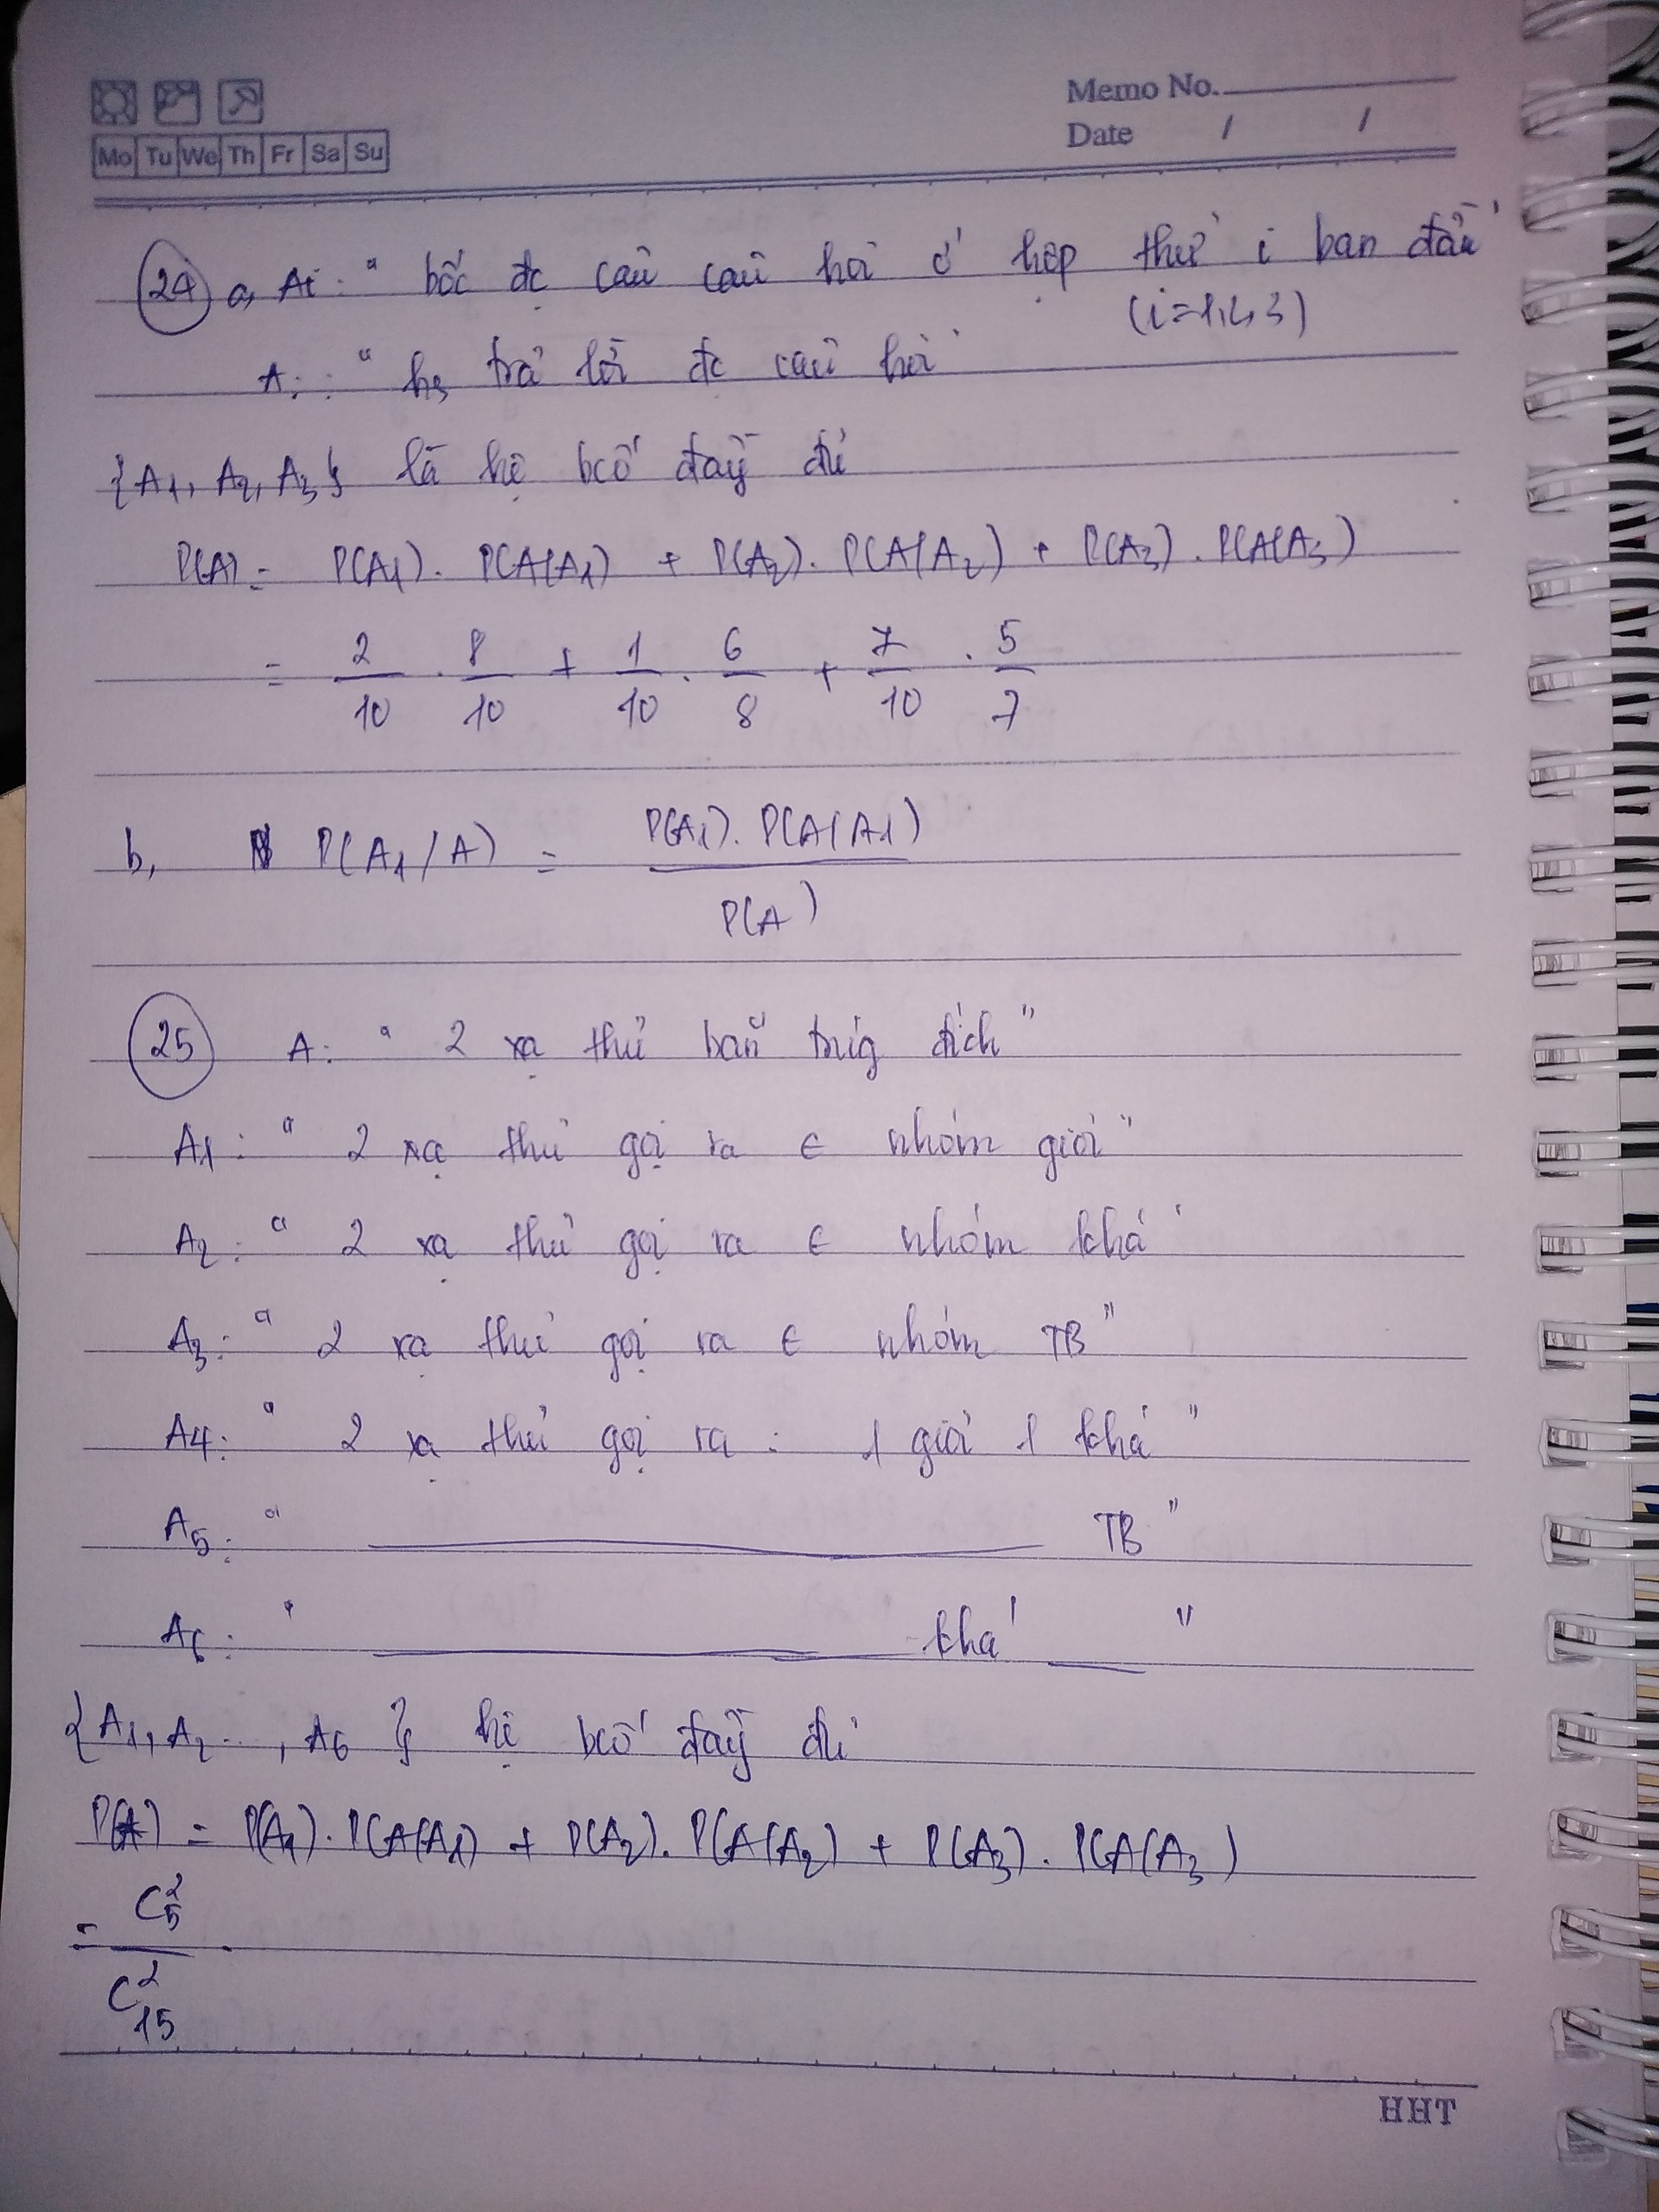 Memo No.
Date / /
Mo Tu We Th Fr Sa Su
24 a, Ai: " bốc đc câu câu hỏi ở hộp thứ i ban đầu "
(i=1,2,3)
A: " hs trả lời đc câu hỏi "
{A1, A2, A3} là hệ bcố đầy đủ
P(A) = P(A1). P(A/A1) + P(A2). P(A/A2) + P(A3). P(A/A3)
= 2/10 . 8/10 + 1/10 . 6/8 + 7/10 . 5/7
b, P(A1/A) = P(A1). P(A/A1) / P(A)
25 A: " 2 xạ thủ bắn trúng đích "
A1: " 2 xạ thủ gọi ra ∈ nhóm giỏi "
A2: " 2 xạ thủ gọi ra ∈ nhóm khá "
A3: " 2 xạ thủ gọi ra ∈ nhóm TB "
A4: " 2 xạ thủ gọi ra : 1 giỏi 1 khá "
A5: " ______ TB "
A6: " ______ khá __ "
{A1, A2 ..., A6} hệ bcố đầy đủ
P(A) = P(A1). P(A/A1) + P(A2). P(A/A2) + P(A3). P(A/A3)
= C²₅ / C²₁₅ .
HHT